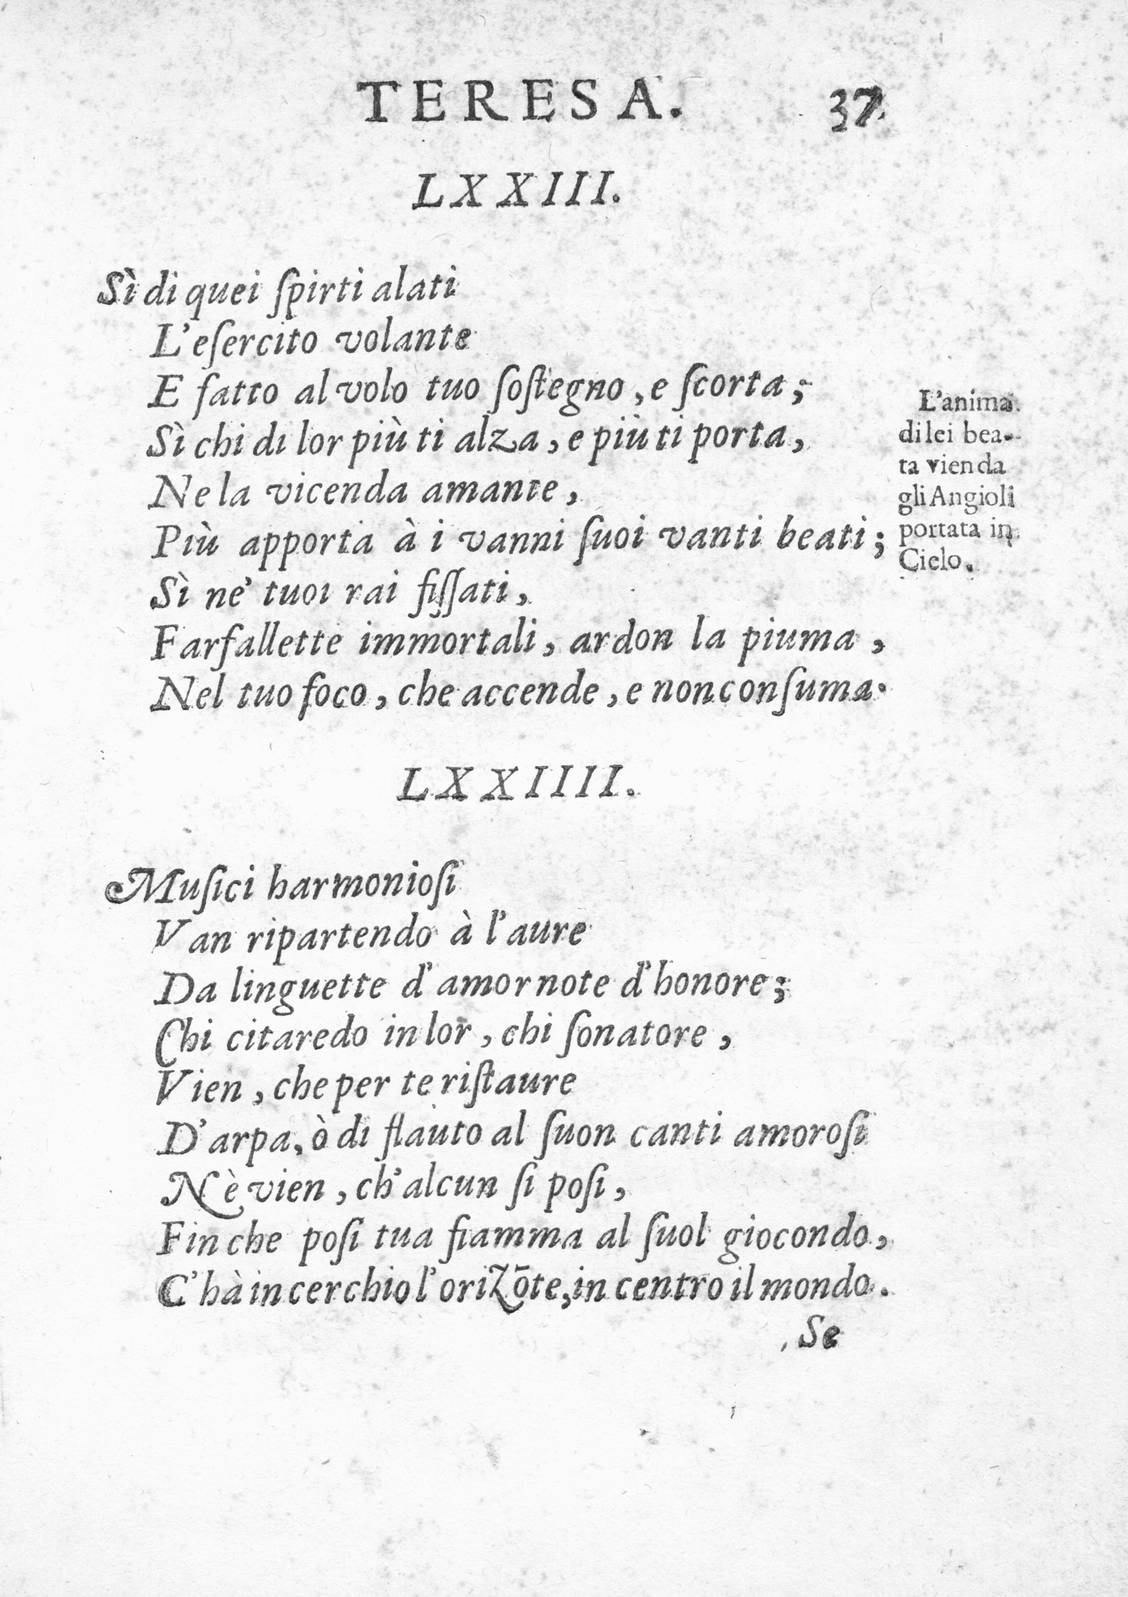 TERESA. 37
LXXIII.
Sì di quei ſpirti alati
L'eſercito volante
E fatto al volo tuo ſoſtegno, e ſcorta;
Sì chi di lor più ti alza, e più ti porta,
Ne la vicenda amante,
Più apporta à i vanni ſuoi vanti beati;
Sì ne' tuoi rai fiſſati,
Farfallette immortali, ardon la piuma,
Nel tuo foco, che accende, e non conſuma.
L'anima
di lei bea-
ta vien da
gli Angioli
portata in
Cielo.
LXXIIII.
Muſici harmonioſi
Van ripartendo à l'aure
Da linguette d'amor note d'honore;
Chi citaredo in lor, chi ſonatore,
Vien, che per te riſtaure
D'arpa, ò di flauto al ſuon canti amoroſi
Nè vien, ch'alcun ſi poſi,
Fin che poſi tua fiamma al ſuol giocondo,
C'hà in cerchio l'orizōte, in centro il mondo.
Se